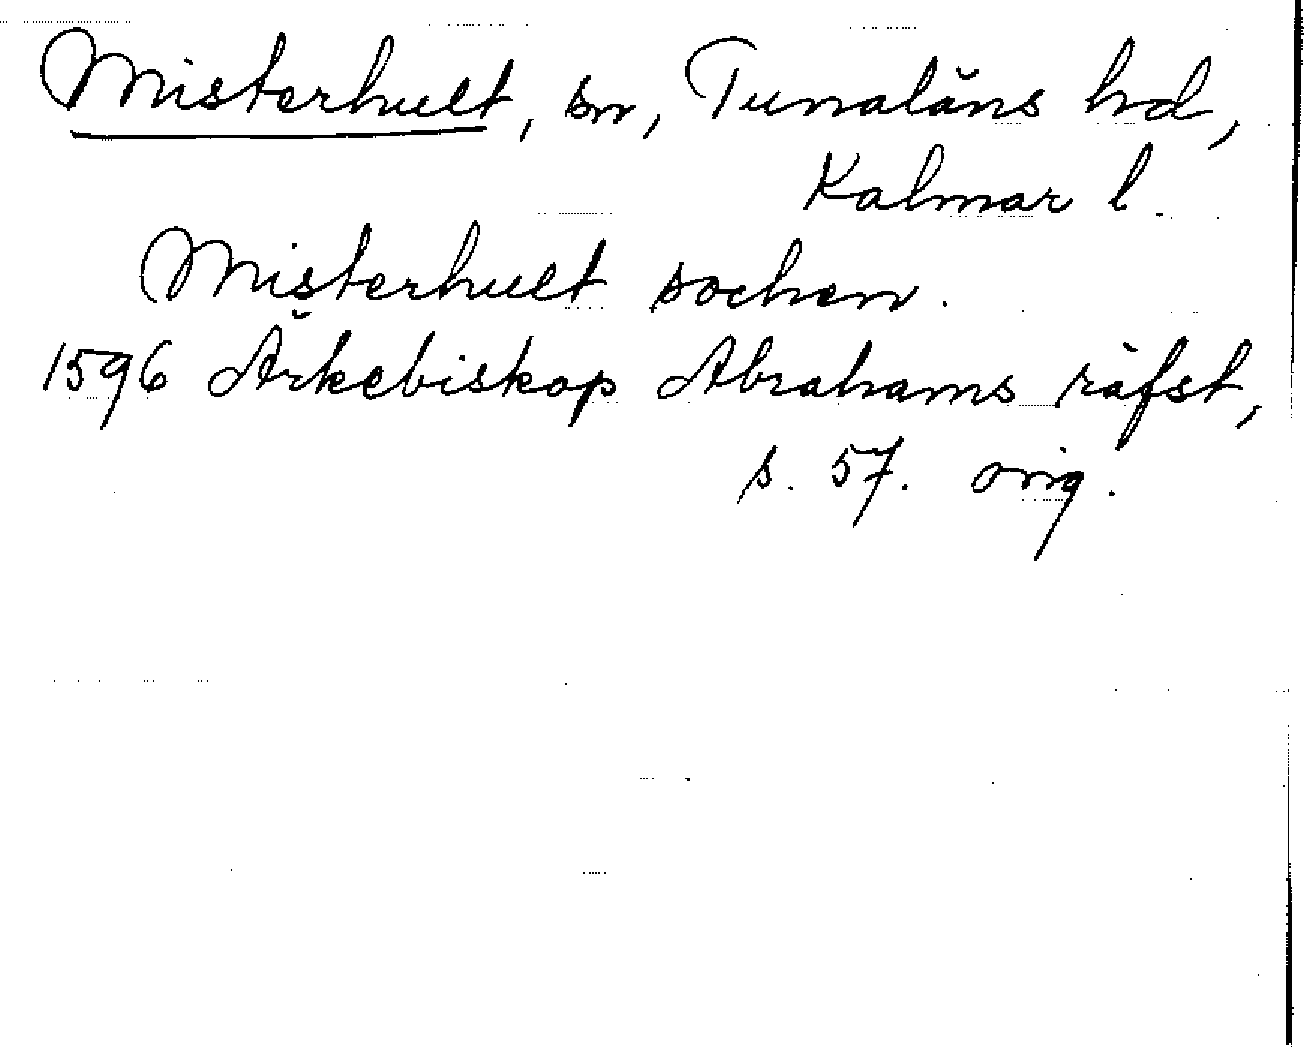 Misterhult, sn, Tunaläns hd,
Kalmar l.
Misterhult sochen.
1596 Ärkebiskop Abrahams räfst,
s. 57. orig.